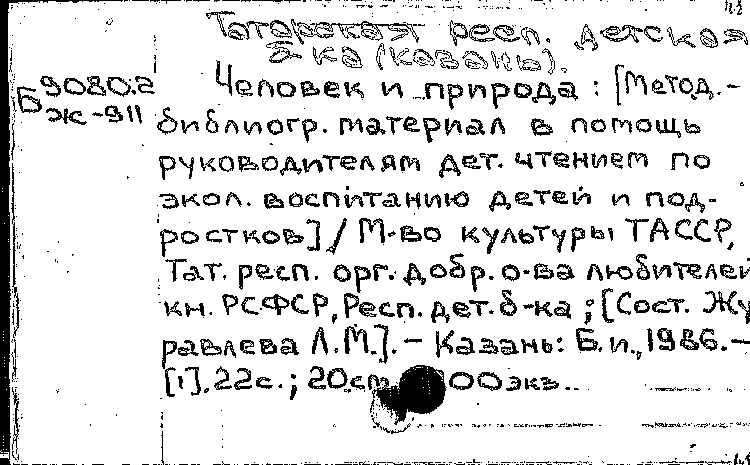 Татарская респ. детская
б-ка (Казань).
9080.2
Бж-911
Человек и природа : [Метод.-
библиогр. материал в помощь
руководителям дет. чтением по
экол. воспитанию детей и под-
ростков] / М-во культуры ТАССР,
Тат. респ. орг. добр. о-ва любителей
кн. РСФСР, Респ. дет. б-ка ; [Сост. Жу
равлева Л.М.]. – Казань: Б.и., 1986. –
[1], 22с. ; 20см 00экз.